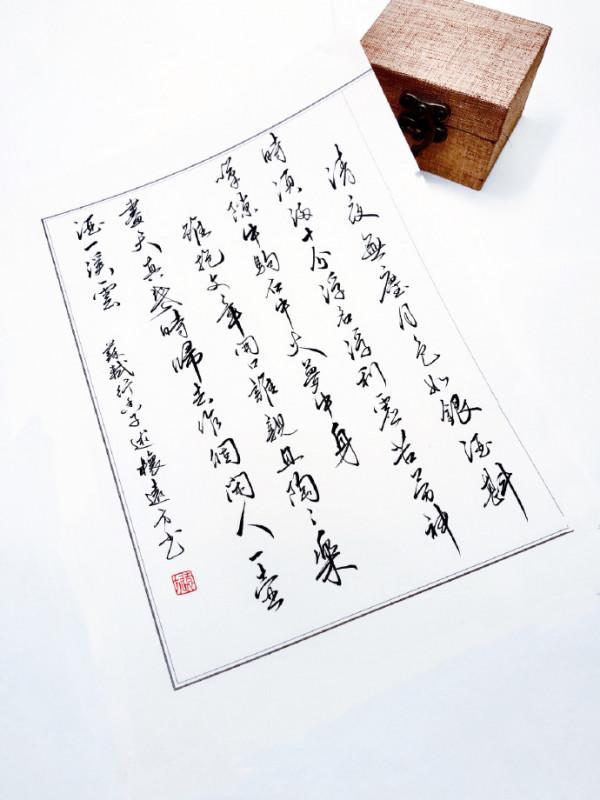 清夜無塵月色如銀酒斟
時須滿十分浮名浮利虛苦勞神
嘆隙中駒石中火夢中身
雖抱文章開口誰親且陶々樂
盡天真幾時歸去作個閑人一壺
酒一溪雲
蘇軾行香子述懷遠方書